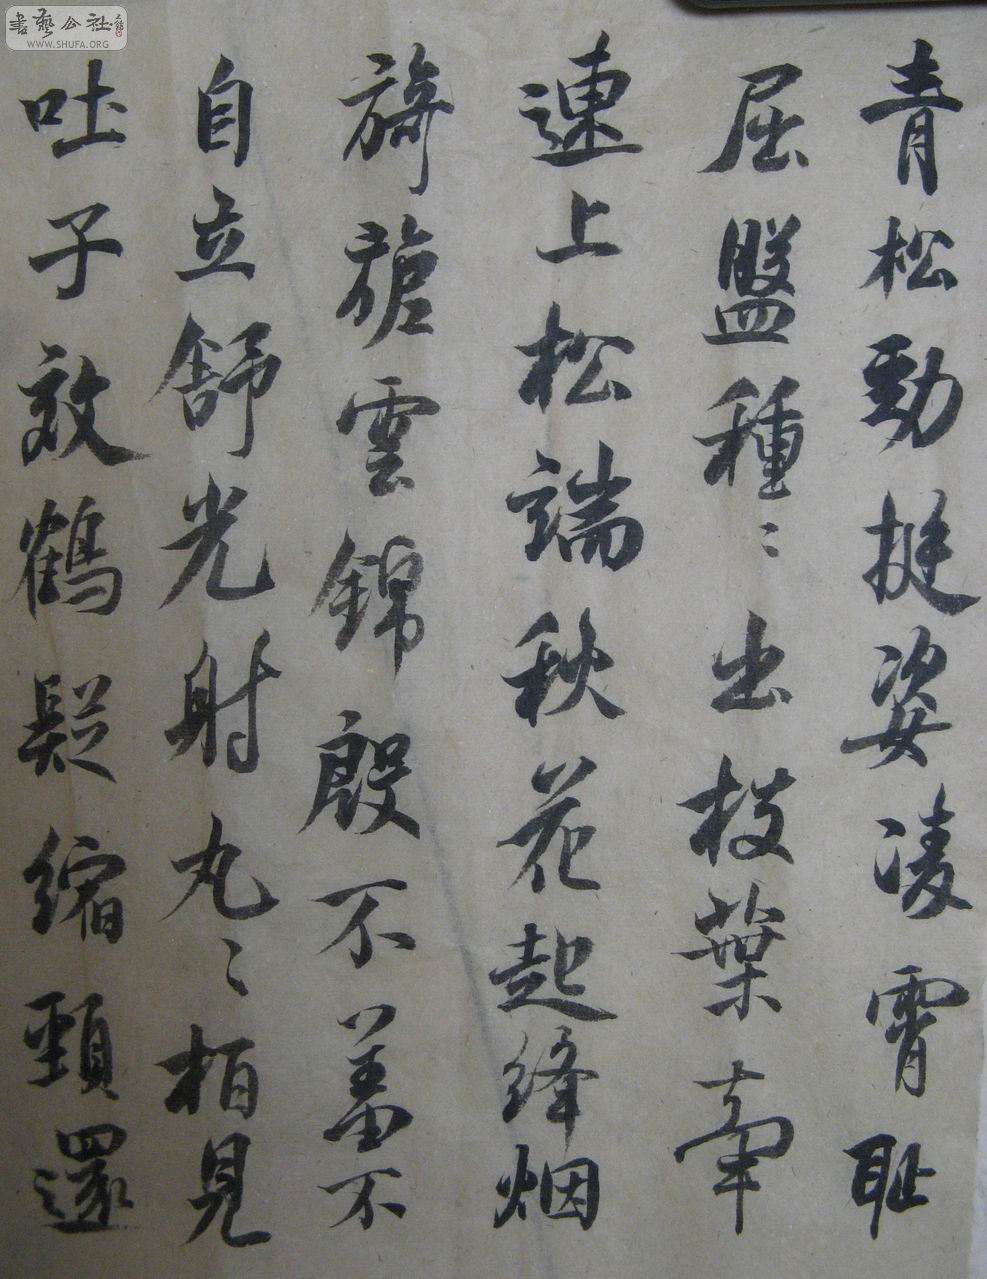 青松勁挺姿凌霄耻
屈盤種〻出枝葉牽
連上松端秋花起絳烟
旖旎雲錦殷不羞不
自立舒光射丸〻柏見
吐子效鶴疑縮頸還
書藝公社
WWW.SHUFA.ORG